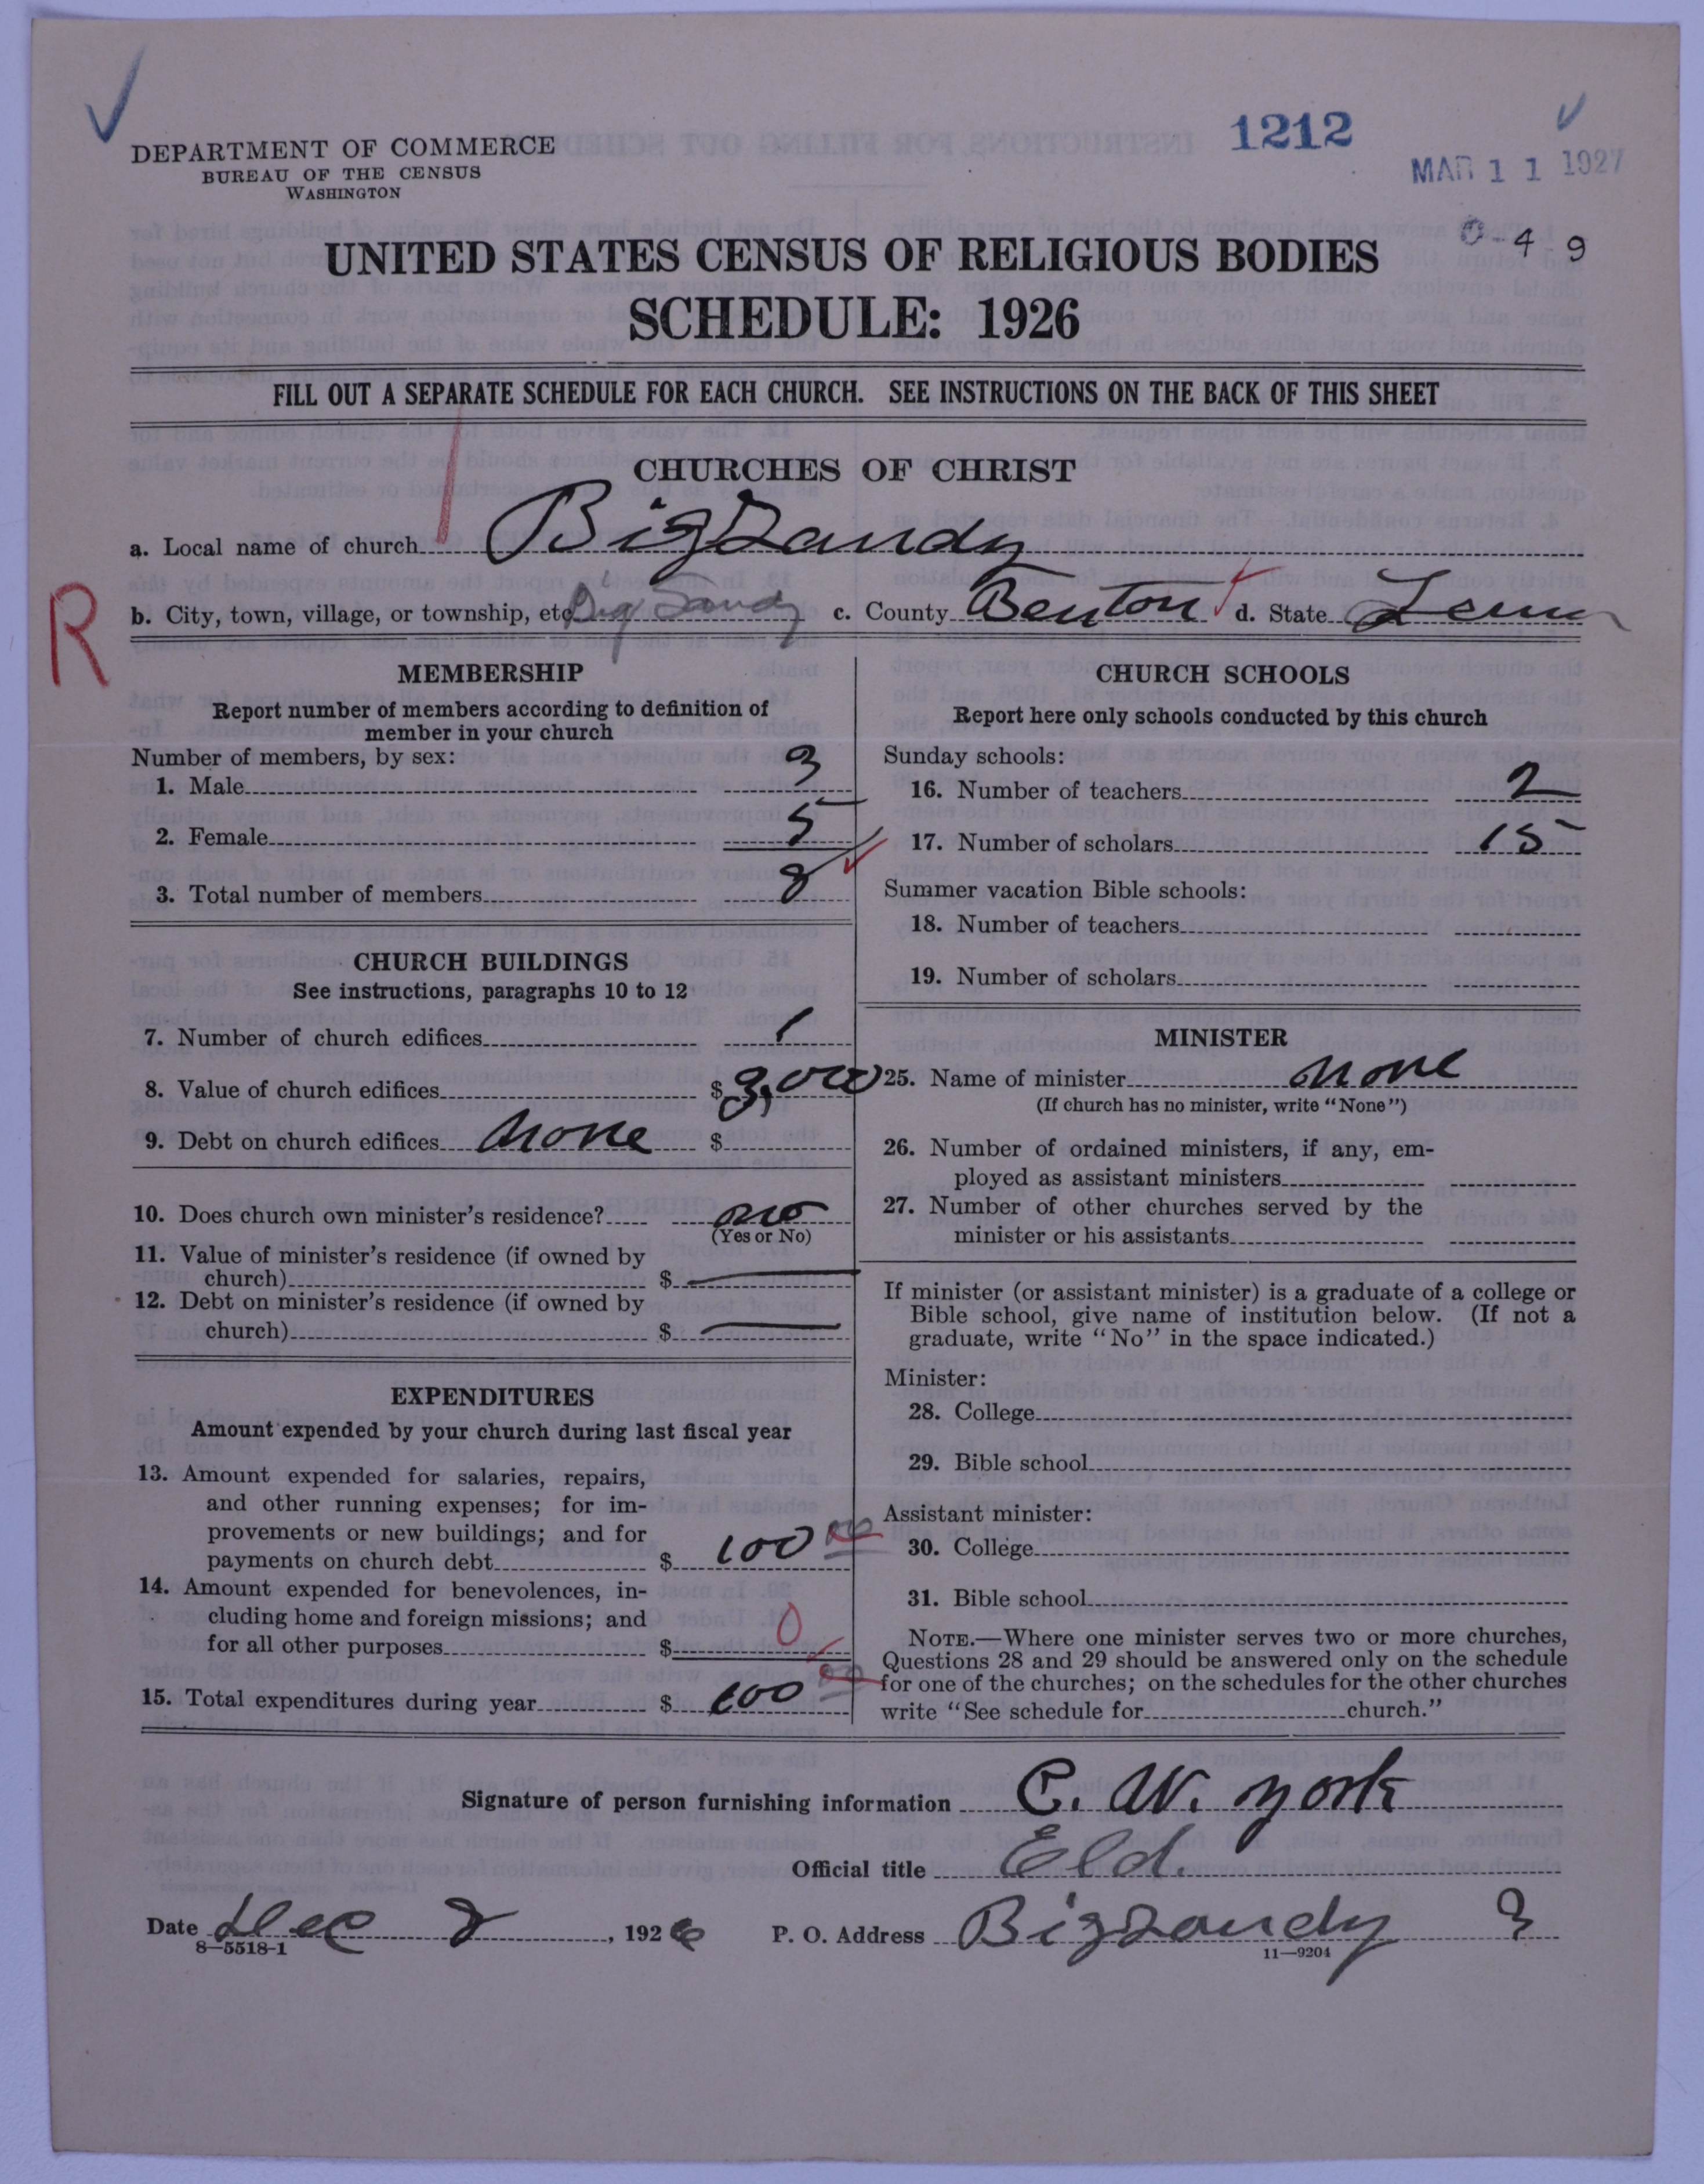 1212
MAR 11 1927
DEPARTMENT OF COMMERCE
BUREAU OF THE CENSUS
WASHINGTON
0-4 9
UNITED STATES CENSUS OF RELIGIOUS BODIES
SCHEDULE: 1926
FILL OUT A SEPARATE SCHEDULE FOR EACH CHURCH. SEE INSTRUCTIONS ON THE BACK OF THIS SHEET
CHURCHES OF CHRIST
a. Local name of church Big Sandy
R
b. City, town, village, or township, etc. Big Sandy c. County Benton d. State Tenn
MEMBERSHIP
Report number of members according to definition of
member in your church
Number of members, by sex:
1. Male 3
2. Female 5
3. Total number of members 8
CHURCH BUILDINGS
See instructions, paragraphs 10 to 12
7. Number of church edifices 1
8. Value of church edifices $ 3,000
9. Debt on church edifices none $
10. Does church own minister's residence? no
(Yes or No)
11. Value of minister's residence (if owned by
church) $
12. Debt on minister's residence (if owned by
church) $
EXPENDITURES
Amount expended by your church during last fiscal year
13. Amount expended for salaries, repairs,
and other running expenses; for im-
provements or new buildings; and for
payments on church debt $ 100 00
14. Amount expended for benevolences, in-
cluding home and foreign missions; and
for all other purposes $ 0
15. Total expenditures during year $ 100 00
CHURCH SCHOOLS
Report here only schools conducted by this church
Sunday schools:
16. Number of teachers 2
17. Number of scholars 15
Summer vacation Bible schools:
18. Number of teachers
19. Number of scholars
MINISTER
25. Name of minister none
(If church has no minister, write "None")
26. Number of ordained ministers, if any, em-
ployed as assistant ministers
27. Number of other churches served by the
minister or his assistants
If minister (or assistant minister) is a graduate of a college or
Bible school, give name of institution below. (If not a
graduate, write "No" in the space indicated.)
Minister:
28. College
29. Bible school
Assistant minister:
30. College
31. Bible school
NOTE.—Where one minister serves two or more churches,
Questions 28 and 29 should be answered only on the schedule
for one of the churches; on the schedules for the other churches
write "See schedule for church."
Signature of person furnishing information C. W. York
Official title Eld.
Date Dec 2, 1926 P. O. Address Big Sandy
8—5518-1
11—9204